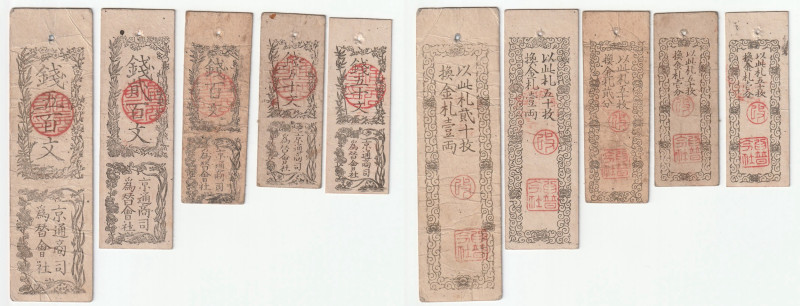 錢五百文
京通商司
爲替會社
錢貳百文
京通商司
爲替會社
錢百文
京通商司
爲替會社
錢五十文
京通商司
爲替會社
錢五十文
京通商司
爲替會社
以此札貳十枚
換金札壹兩
以此札五十枚
換金札壹兩
以此札五十枚
換金札貳分
以此札五十枚
換金札壹分
以此札五十枚
換金札壹分